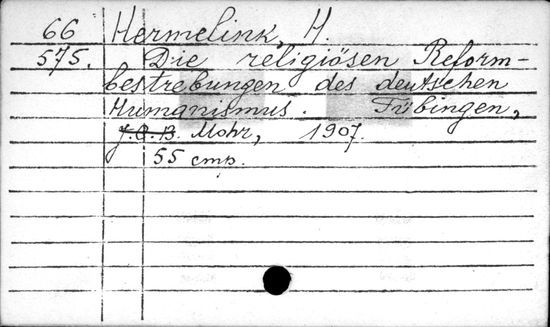 66 Hermelink, H.
575. Die religiösen Reform-
bestrebungen des deutschen
Humanismus. Tübingen,
J.C.B. Mohr, 1907.
55 стр.